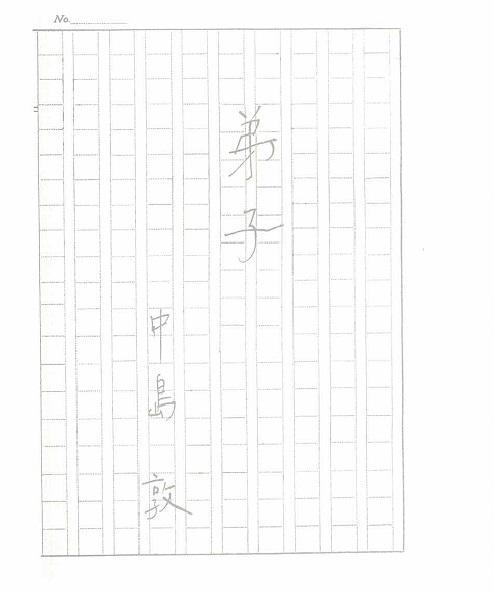 No.
弟子
中島敦